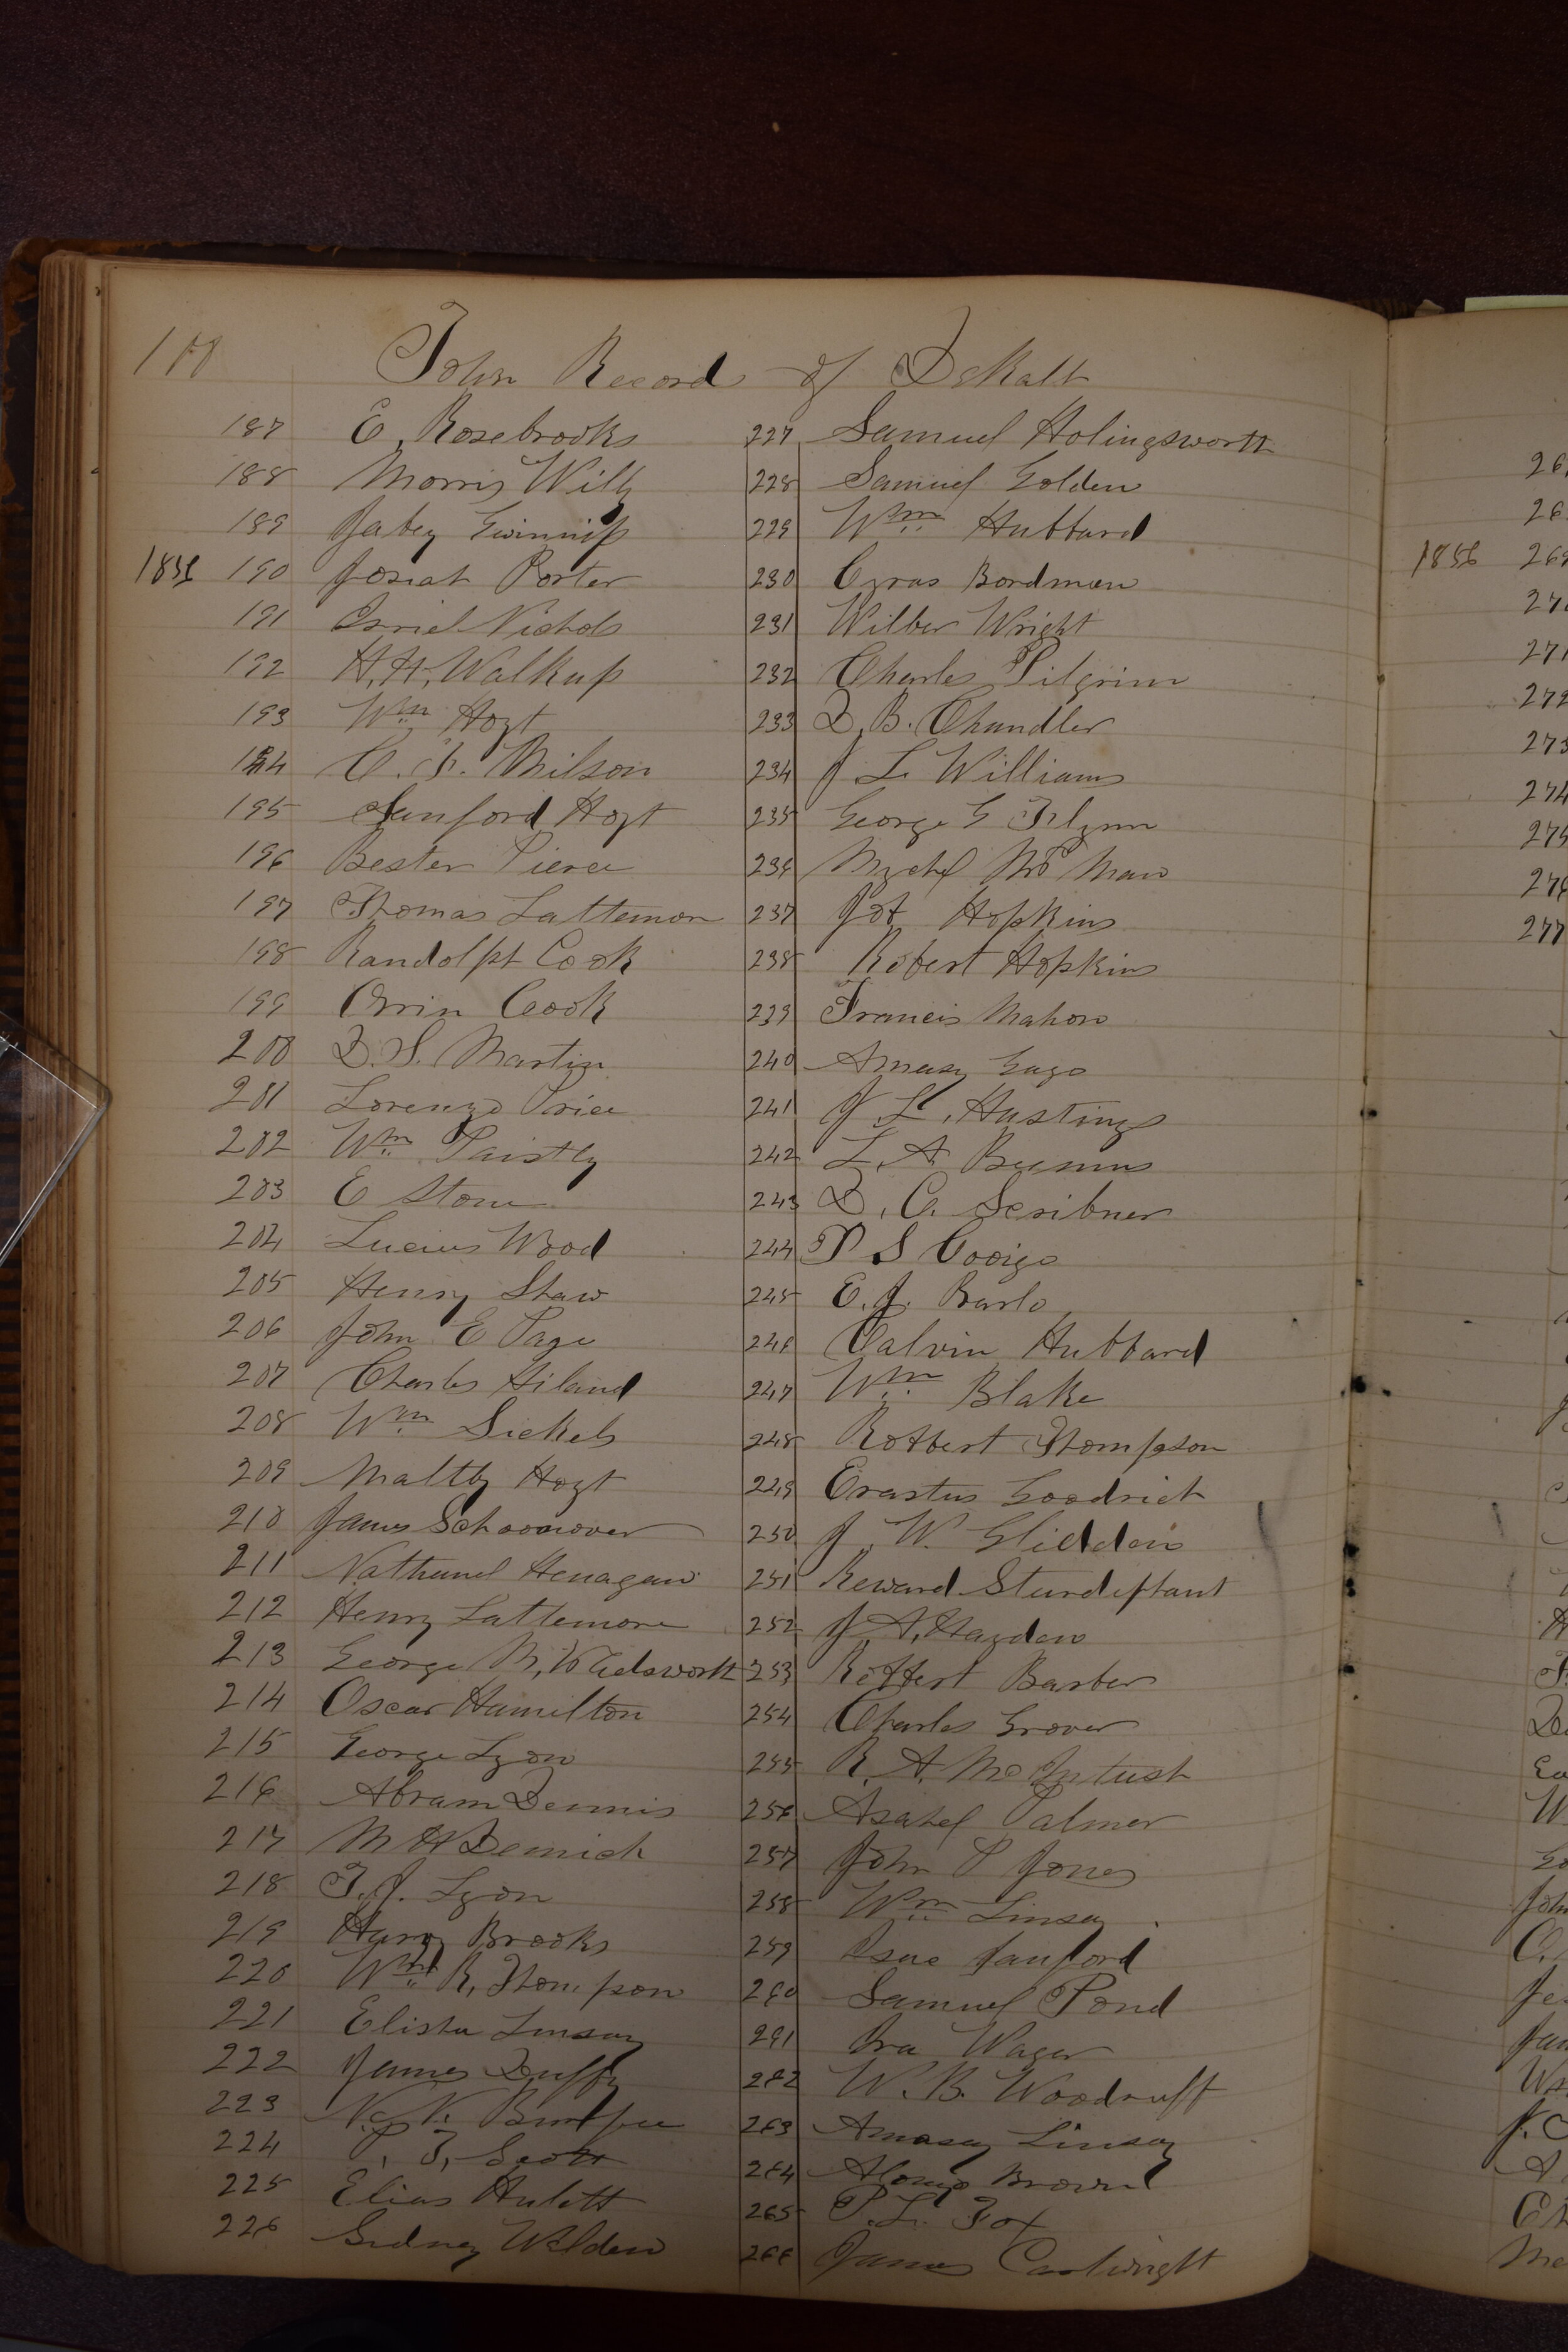 100
Town Record of DeKalb
187 E. Rosebrooks
188 Morris Wills
189 Jabez Gwinnip
1856 190 Josiah Porter
191 Nichols
192 H. H. Walkup
193 Wm Hoyt
194 C. F. Milson
195 Sanford Hoyt
196 Bester Pierce
197 Thomas Lattemore
198 Randolph Cook
199 Orrin Cook
200 D. S. Martin
201 Lorenzo Price
202 Wm Paistly
203 E Stone
204 Lucius Wood
205 Henry Shaw
206 John E Page
207 Charles Hiland
208 Wm Sickels
209 Maltby Hoyt
210 James Schoonover
211 Nathanel Henagan
212 Henry Lattemore
213 George M. Wedsworth
214 Oscar Hamilton
215 George Lyon
216 Abram Dennis
217 M H Demick
218 T. J. Lyon
219 Harry Brooks
220 Wm R. Thompson
221 Elisha Linsay
222 James Duffy
223
224 P. T. Scott
225 Elias Hulett
226 Sidney Walden
227 Samuel Holingsworth
228 Samuel Golden
229 Wm Hubbard
230 Cyras Bordman
231 Wilber Wright
232 Charles Pilgrim
233 D. B. Chandler
234 J L. Williams
235 George G Flynn
236 Mychel
237 Job Hopkins
238 Robert Hopkins
239 Francis Mahon
240 Amasy Gago
241 J. L. Hastings
242 L. A.
243 D. C. Scribner
244 P S
245 E. J. Barlo
246 Calvin Hubbard
247 Wm Blake
248 Robbert Thompson
249 Erastus Goodrich
250 J. W. Glidden
251 Reward Sturdiftant
252 J. A. Hayden
253 Robbert Barber
254 Charles Grover
255 R. A. McIntush
256 Asahel Palmer
257 John P Jones
258 Wm Linsay
259 Isac Sanford
260 Samuel Pond
261 Ira Wager
262 W. B. Woodruff
263 Amasay Linsay
264 Alonzo Brown
265 P. L. Fox
266 James Cartwright
1856
271
272
273
274
275
276
277